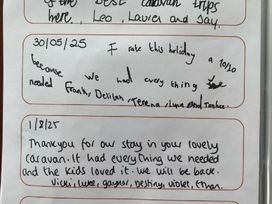 of the best caravan trips
here, Leo, Lauren and Jay.
30/05/25 I rate this holiday a 10/10
because we had every thing we
needed Frank, Delilah, Teresa, Lyna and
1/8/25
Thankyou for our stay in your lovely
caravan. It had everything we needed
and the kids loved it. We will be back.
Vicki, Luke, gaynor, Destiny, violet, Ethan.